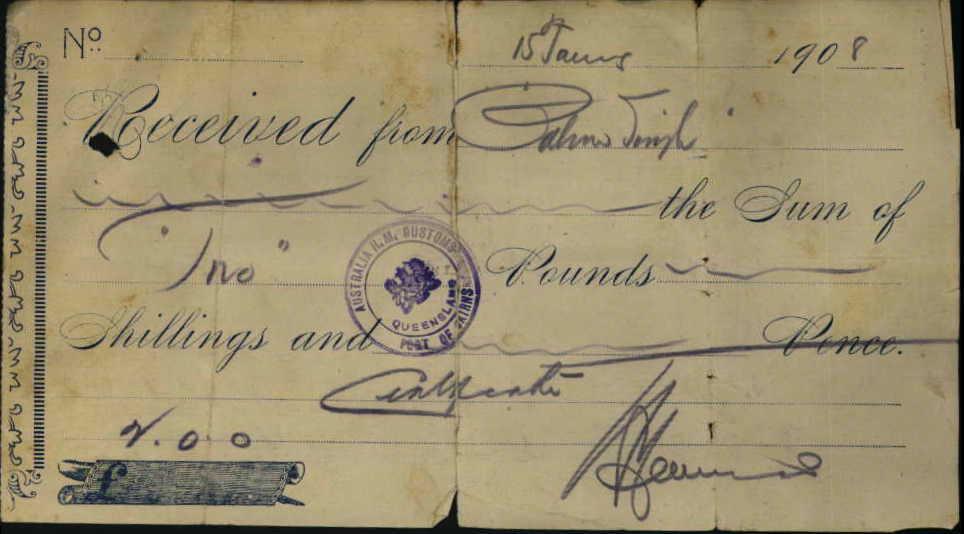 Nº 15 1908
Received from Singh
the Sum of
"Two" Pounds
Shillings and Pence.
Certificate
2.0.0
£
AUSTRALIA H.M. CUSTOMS
QUEENSLAND
PORT OF CAIRNS